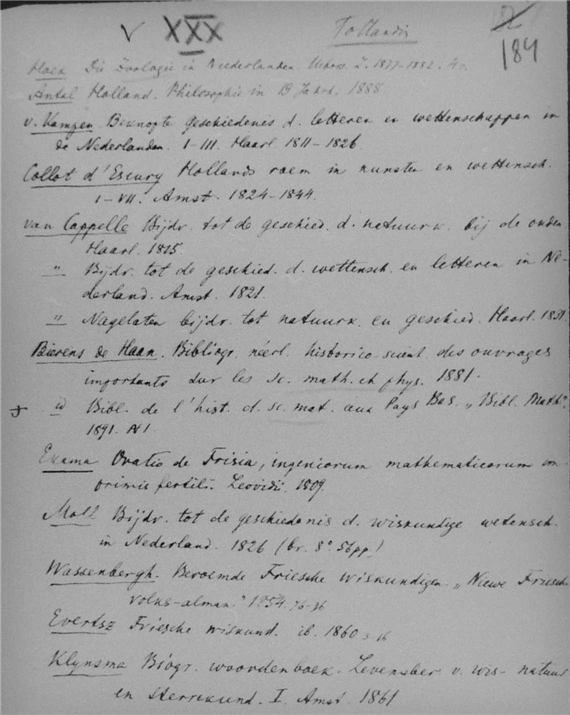 V XXX Hollandia 184
Hoek Die Zoologie in Niederlanden. 1877-1882. 4o.
Antal Holland. Philosophie in 19 Jahrh. 1888.
v. Kampen Beknopte geschiedenis d. letteren en wettenschappen in
de Nederlanden. I-III. Haarl. 1811-1826
Collot d'Escury Hollands roem in kunsten en wettensch.
I-VII. Amst. 1824-1844.
van Cappelle Bijdr. tot de geschied. d. natuurk. bij de ouden
Haarl. 1815.
" Bijdr. tot de geschied. d. wettensch. en letteren in Ne-
derland. Amst. 1821.
" Nagelaten bijdr. tot natuurk. en geschied. Haarl. 1831.
Bierens de Haan. Bibliogr. néerl. historico-scient. des ouvrages
importants sur les sc. math. et phys. 1881.
+ id Bibl. de l'hist. d. sc. mat. aux Pays Bas. „Bibl. Math".
1891. N1.
Exama Oratio de Frisia, ingeniorum mathematicorum im-
primis fertili. Leovidii. 1809.
Moll Bijdr. tot de geschiedenis d. wiskundige wetensch.
in Nederland. 1826 (br. 8° 56pp.)
Wassenbergh. Beroemde Friesche wiskundigen „Nieuwe Friesche
volks-alman." 1854.
Evertsz Friesche wiskund. ib. 1860
Klynsma Biogr. woordenboek. Levensber. v. wis- natuur
en sterrekund. I. Amst. 1861